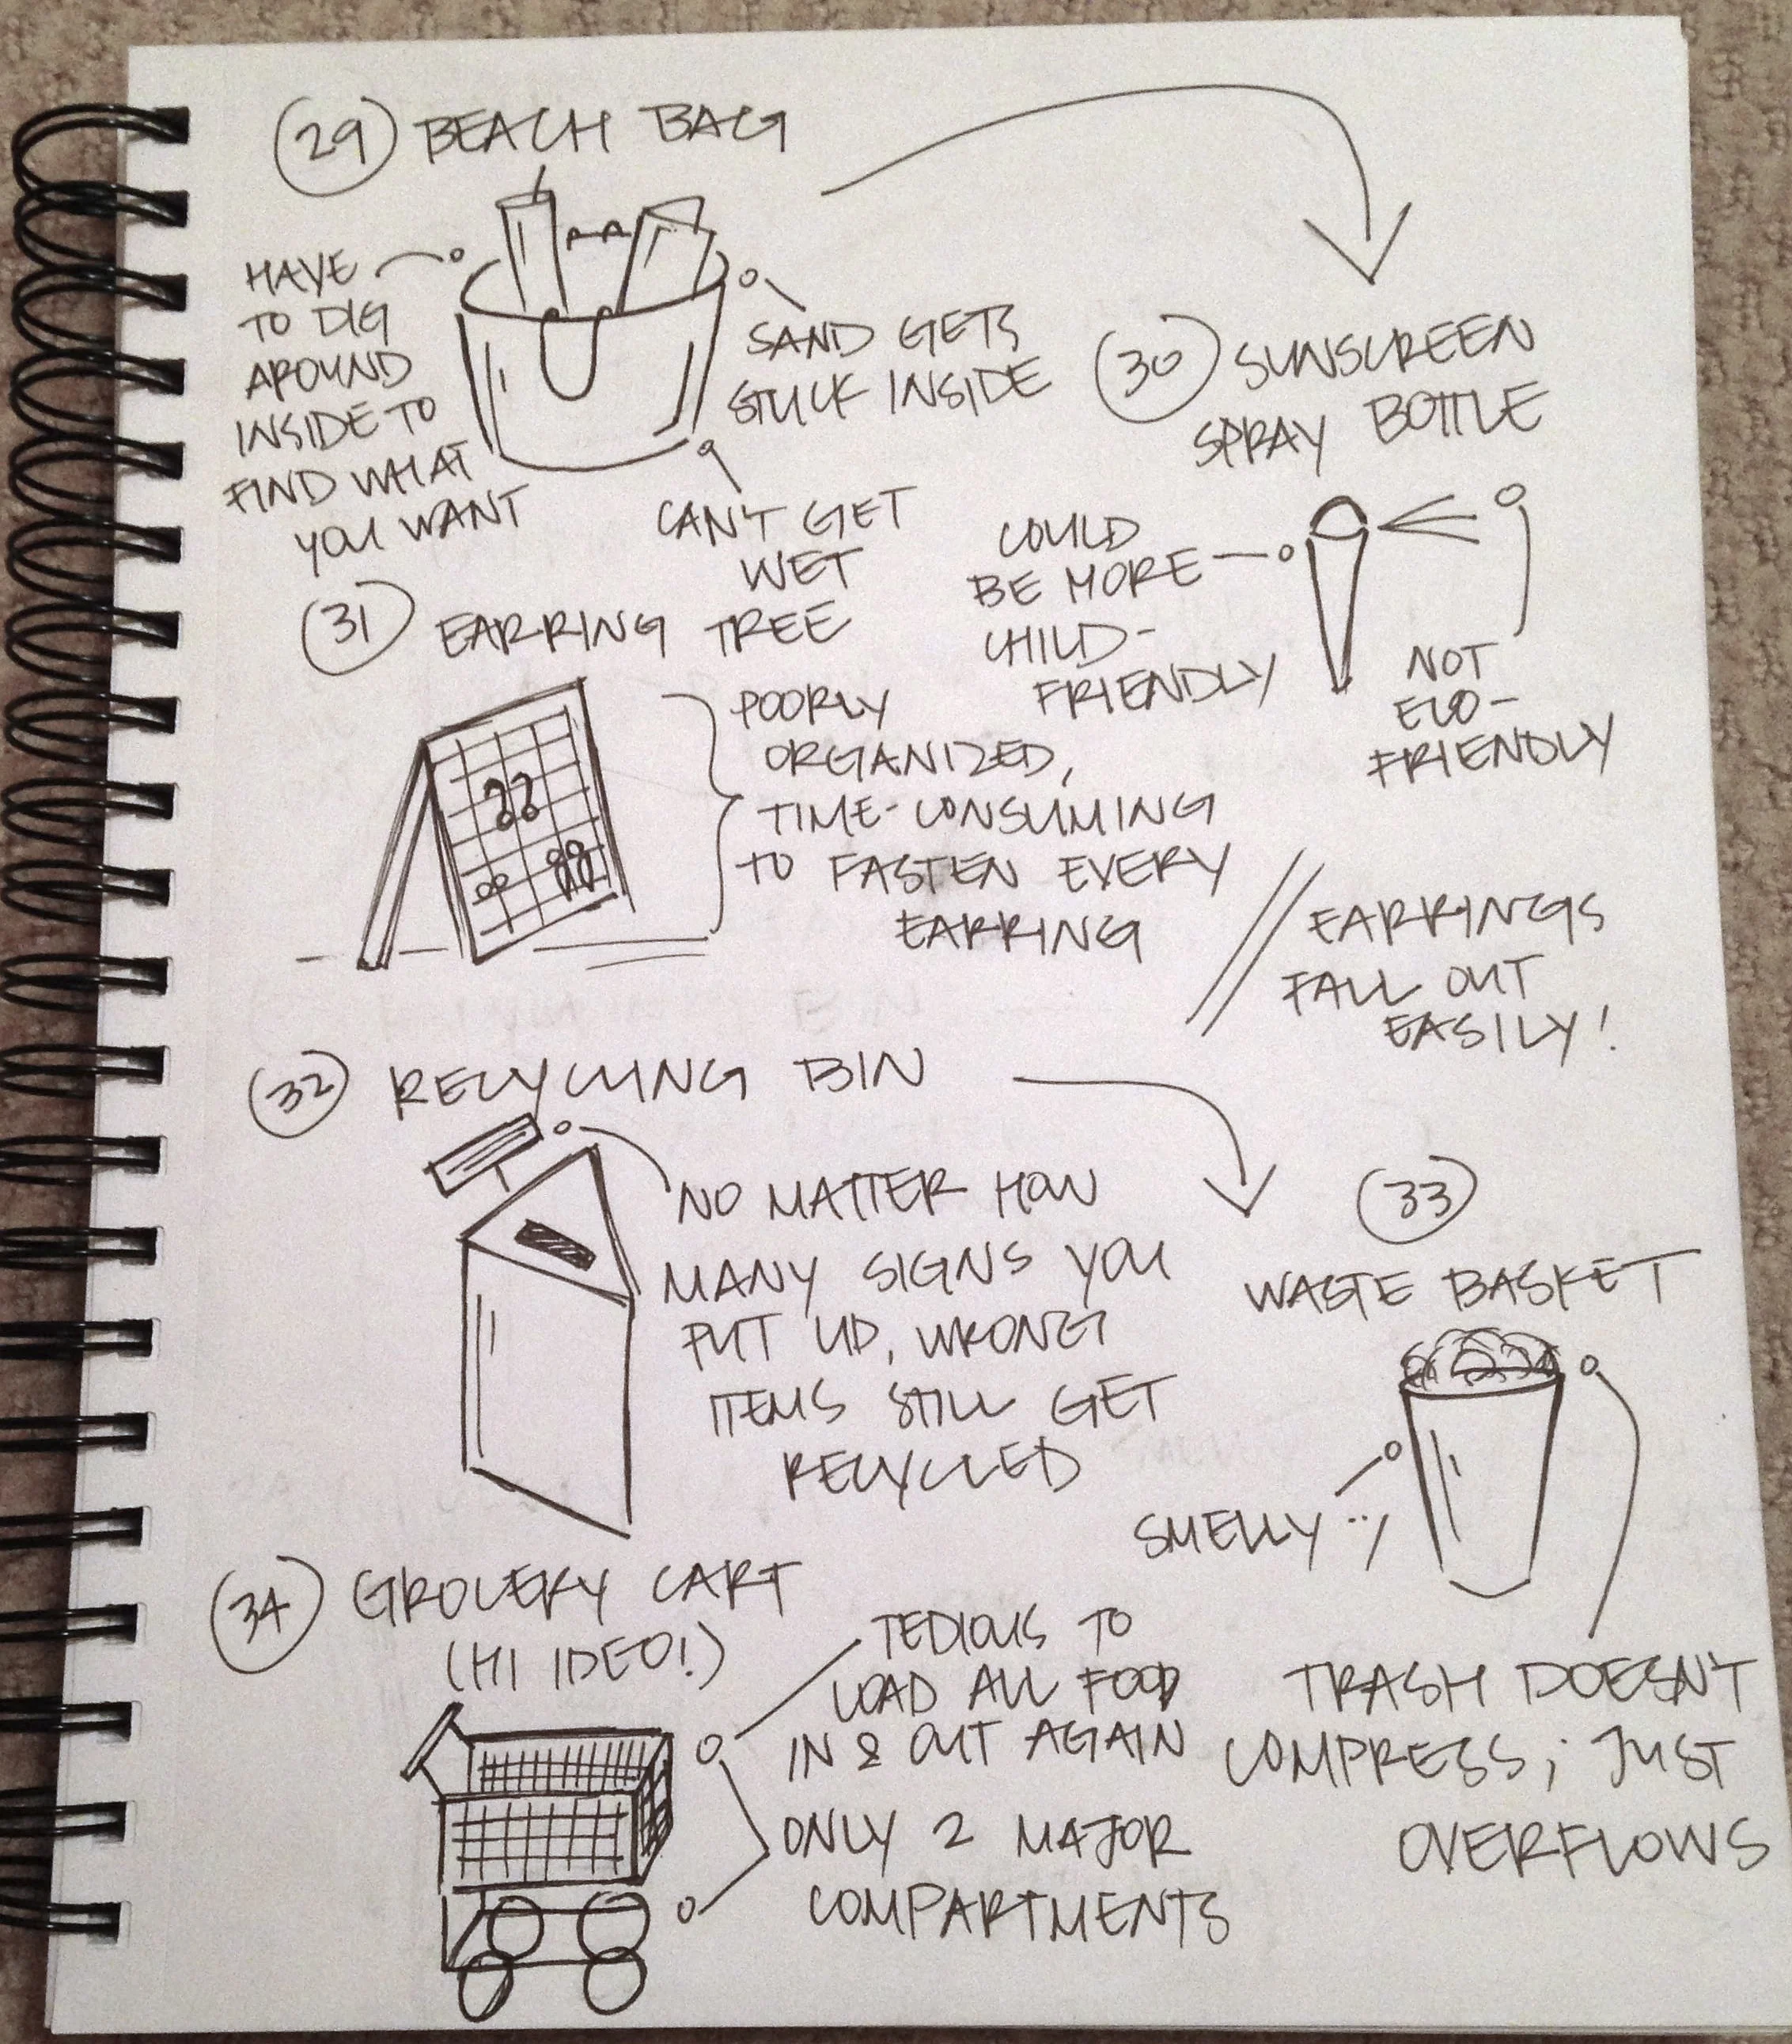 29 BEACH BAG
HAVE
TO DIG
AROUND
INSIDE TO
FIND WHAT
YOU WANT
SAND GETS
STUCK INSIDE
CAN'T GET
WET
30 SUNSCREEN
SPRAY BOTTLE
COULD
BE MORE
CHILD-
FRIENDLY
NOT
ECO-
FRIENDLY
31 EARRING TREE
POORLY
ORGANIZED,
TIME-CONSUMING
TO FASTEN EVERY
EARRING
EARRINGS
FALL OUT
EASILY!
32 RECYCLING BIN
NO MATTER HOW
MANY SIGNS YOU
PUT UP, WRONG
ITEMS STILL GET
RECYCLED
33
WASTE BASKET
SMELLY :/
TRASH DOESN'T
COMPRESS; JUST
OVERFLOWS
34 GROCERY CART
(HI IDEO!)
TEDIOUS TO
LOAD ALL FOOD
IN & OUT AGAIN
ONLY 2 MAJOR
COMPARTMENTS